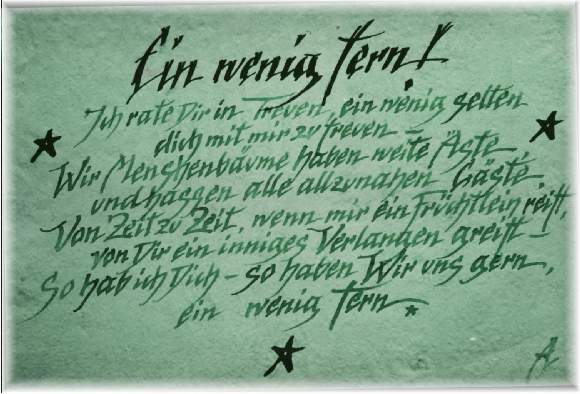 Ein wenig fern!
Ich rate Dir in Treuen, ein wenig selten
dich mit mir zu freuen –
Wir Menshenbäume haben weite Äste
und hassen alle allzunahen Gäste
Von Zeit zu Zeit, wenn mir ein Früchtlein reift,
von Dir ein inniges Verlangen greift –
So hab ich Dich – so haben Wir uns gern,
ein wenig fern